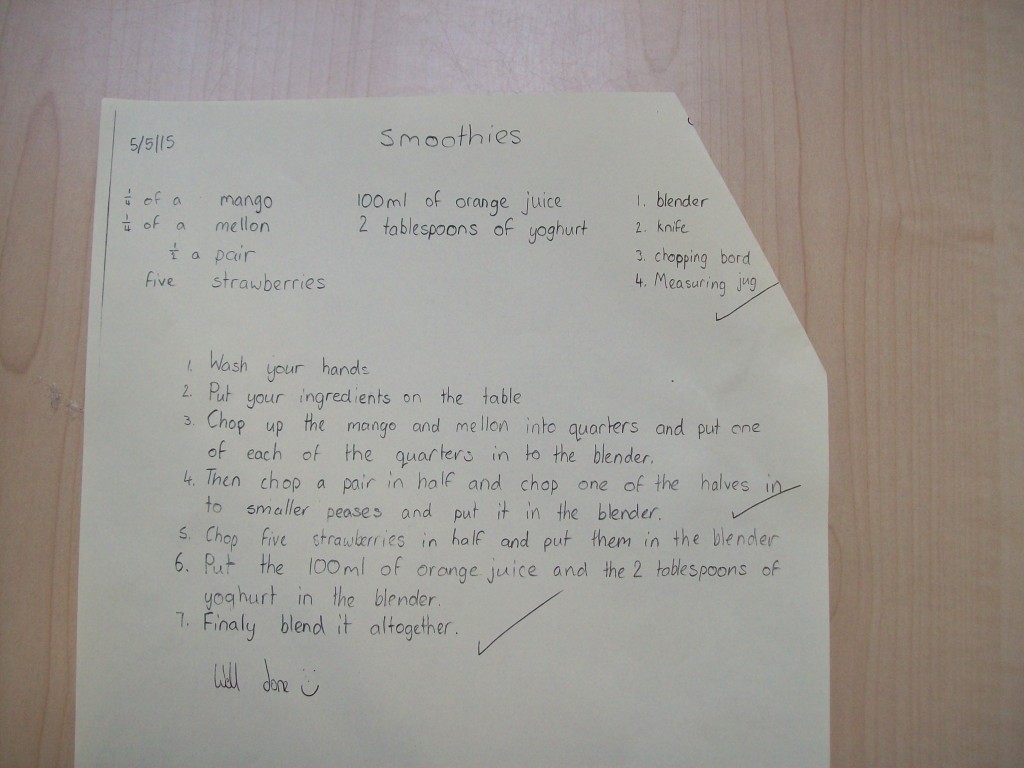 5/5/15
Smoothies
1/4 of a mango
1/4 of a mellon
1/2 a pair
five strawberries
100ml of orange juice
2 tablespoons of yoghurt
1. blender
2. knife
3. chopping bord
4. Measuring jug
1. Wash your hands
2. Put your ingredients on the table
3. Chop up the mango and mellon into quarters and put one
of each of the quarters in to the blender.
4. Then chop a pair in half and chop one of the halves in
to smaller peases and put it in the blender.
5. Chop five strawberries in half and put them in the blender
6. Put the 100ml of orange juice and the 2 tablespoons of
yoghurt in the blender.
7. Finaly blend it altogether.
Well done